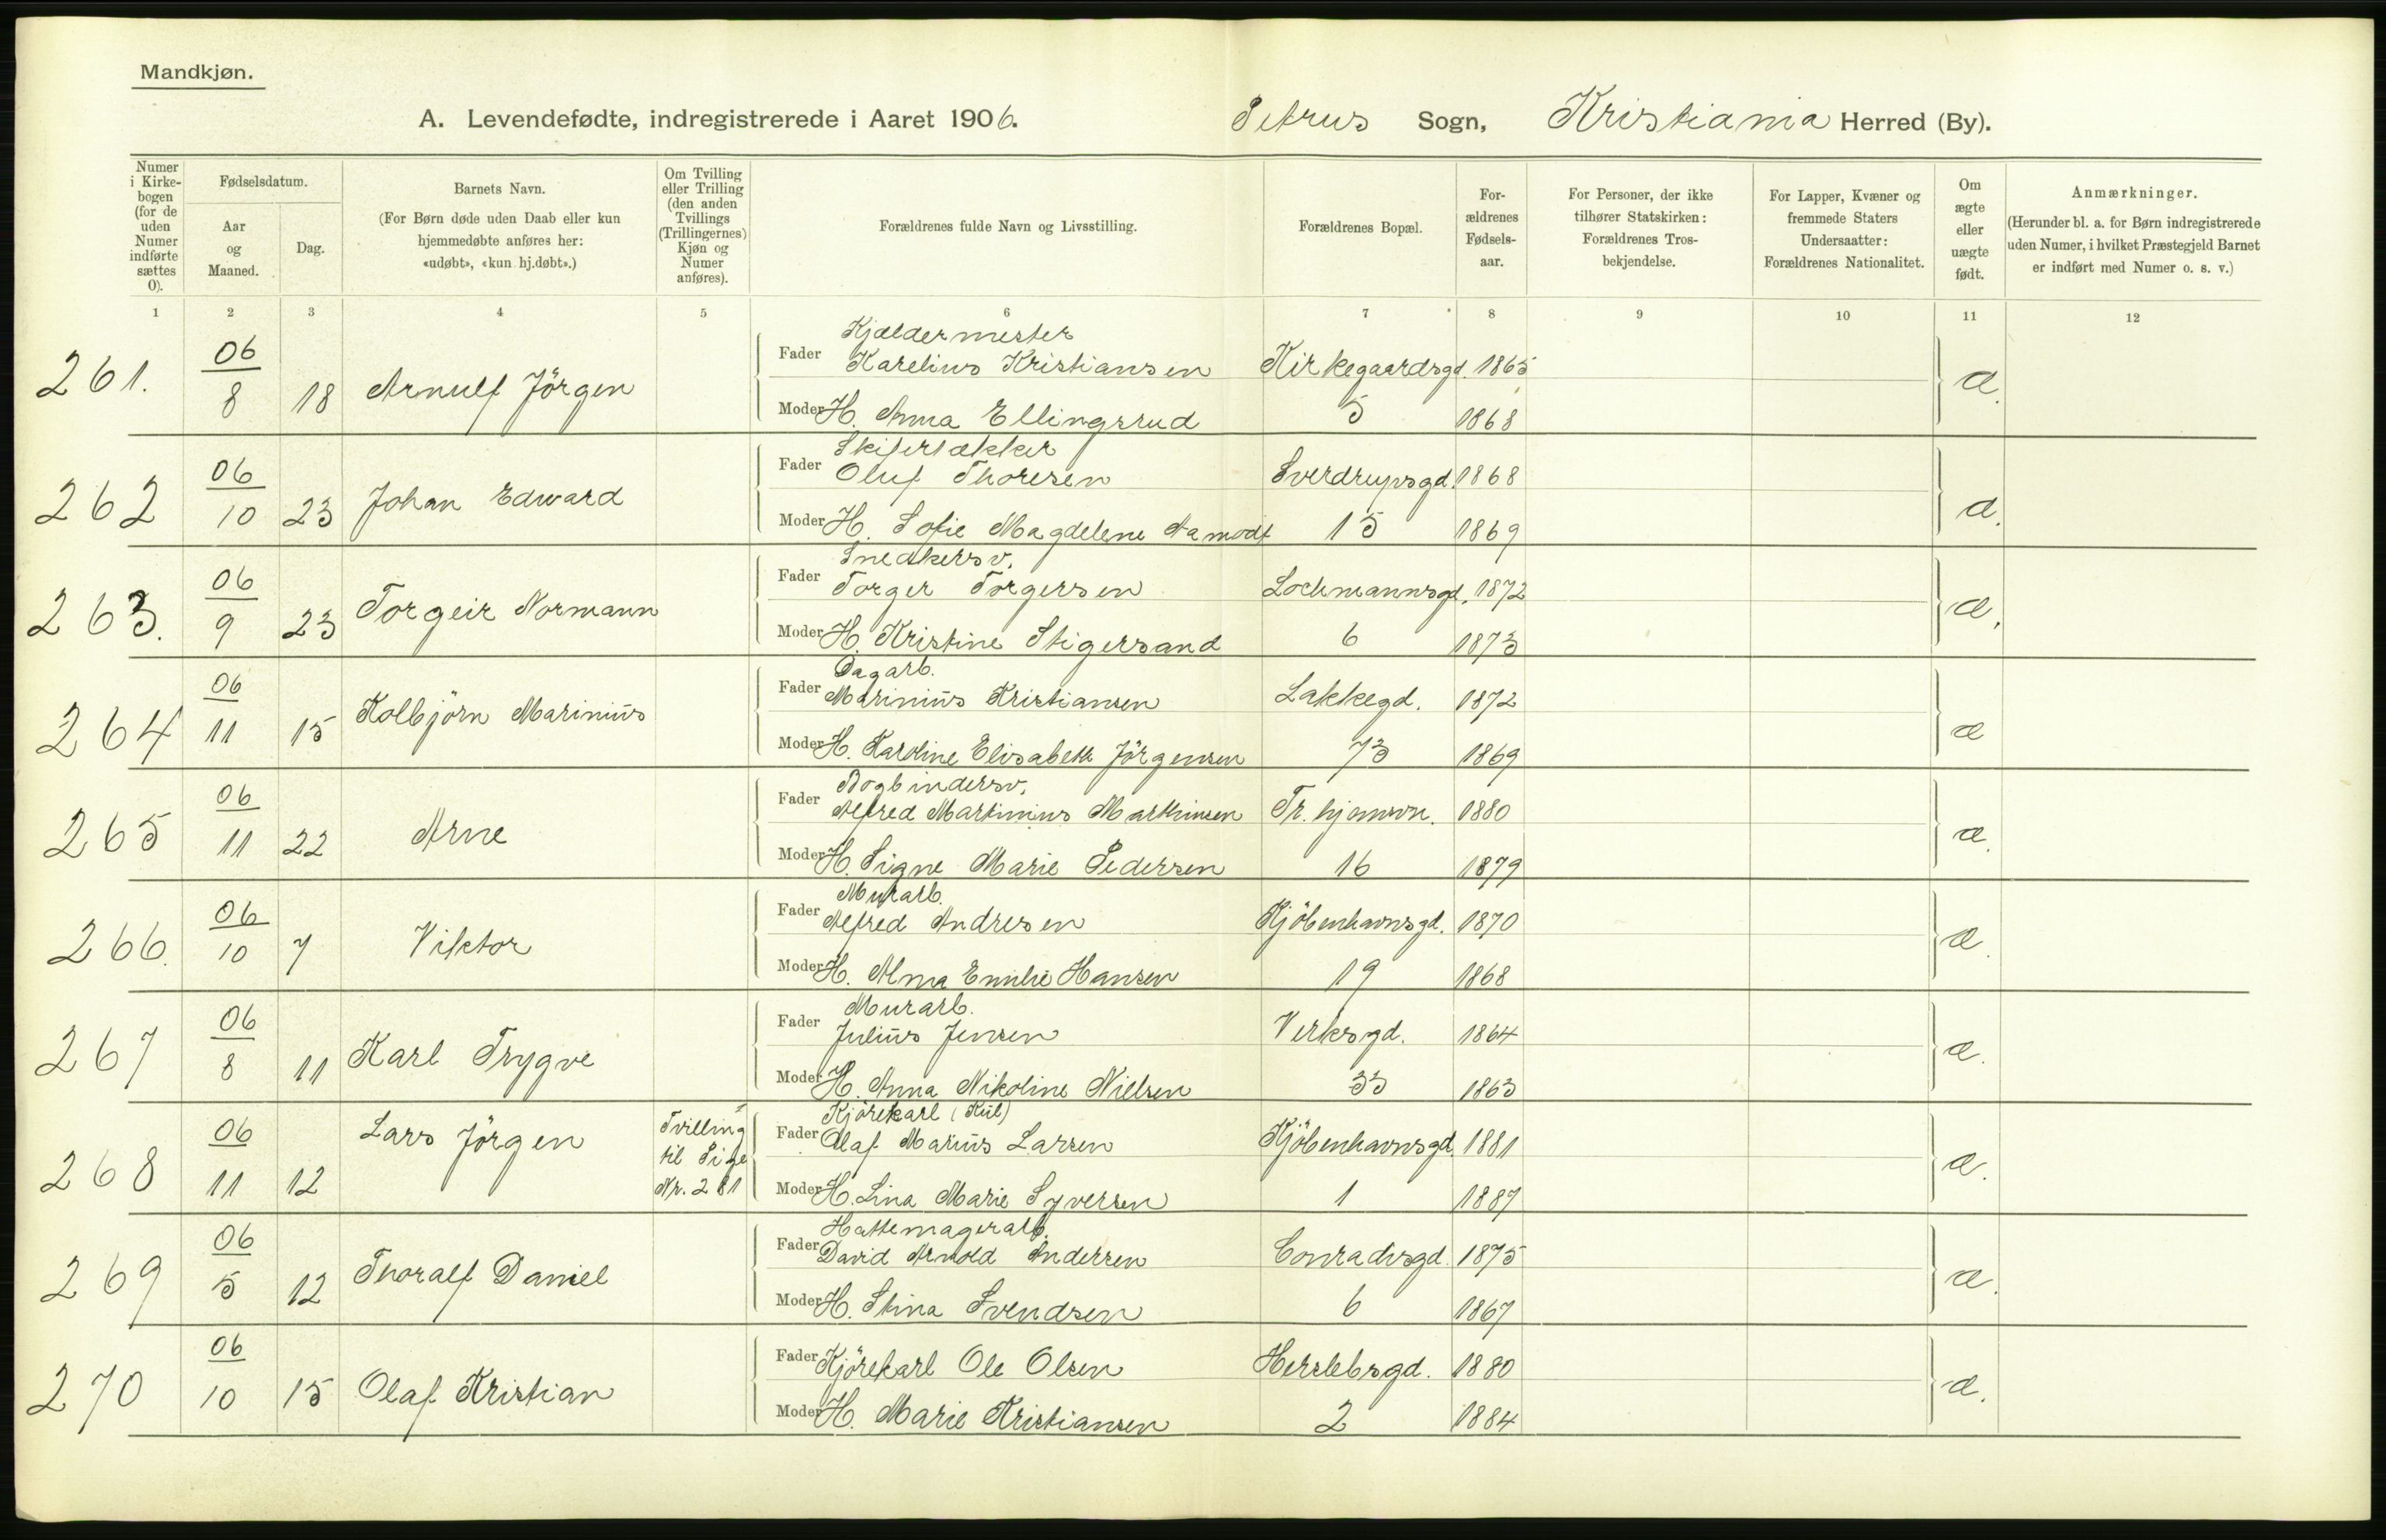 Mandkjøn.
A. Levendefødte, indregistrerede i Aaret 1906. Petrus Sogn, Kristiania Herred (By).
Numer i Kirkebogen (for de uden Numer indførte sættes 0).
Fødselsdatum.
Aar og Maaned.
Dag.
Barnets Navn.
(For Børn døde uden Daab eller kun hjemmedøbte anføres her: «udøbt», «kun hj.døbt».)
Om Tvilling eller Trilling (den anden Tvillings (Trillingernes) Kjøn og Numer anføres).
Forældrenes fulde Navn og Livsstilling.
Forældrenes Bopæl.
Forældrenes Fødselsaar.
For Personer, der ikke tilhører Statskirken: Forældrenes Trosbekjendelse.
For Lapper, Kvæner og fremmede Staters Undersaatter: Forældrenes Nationalitet.
Om ægte eller uægte født.
Anmærkninger.
(Herunder bl. a. for Børn indregistrerede uden Numer, i hvilket Præstegjeld Barnet er indført med Numer o. s. v.)
1 2 3 4 5 6 7 8 9 10 11 12
261. 06/8 18 Arnulf Jörgen
Kjældermester
Fader Karelius Kristiansen Kirkegaardsgd. 1865 æ.
Moder H. Anna Ellingsrud 5 1868
262 06/10 23 Johan Edward
Skifertækker
Fader Oluf Thoresen Sverdrupsgd. 1868 æ.
Moder H. Sofie Magdelene Aamodt 15 1869
263. 06/9 23 Torgeir Normann
Snedkersv.
Fader Torger Torgersen Lochmannsgd. 1872 æ.
Moder H. Kristine Stigersand 6 1873
264 06/11 15 Kolbjörn Marinius
Dagarb.
Fader Marinius Kristiansen Lakkegd. 1872 æ
Moder H. Karoline Elisabeth Jörgensen 73 1869
265 06/11 22 Arne
Bogbindersv.
Fader Alfred Martinius Marthinsen Tr.hjemsvn. 1880 æ.
Moder H. Signe Marie Pedersen 16 1879
266. 06/10 7 Viktor
Murarb.
Fader Alfred Andresen Kjöbenhavnsgd. 1870 æ.
Moder H. Alma Emilie Hansen 19 1868
267 06/8 11 Karl Trygve
Murarb.
Fader Julius Jensen Verksgd. 1864 æ.
Moder H. Anna Nikoline Nielsen 33 1863
268 06/11 12 Lars Jörgen Tvilling til Pige Nr. 281
Kjörekarl (Kul)
Fader Olaf Marius Larsen Kjöbenhavnsgd. 1881 æ.
Moder H. Lina Marie Syversen 1 1887
269 06/5 12 Thoralf Daniel
Hattemagerarb.
Fader David Arnold Andersen Conradisgd. 1875 æ.
Moder H. Stina Svendsen 6 1867
270 06/10 15 Olaf Kristian
Fader Kjörekarl Ole Olsen Herslebsgd. 1880 æ.
Moder H. Marie Kristiansen 2 1884